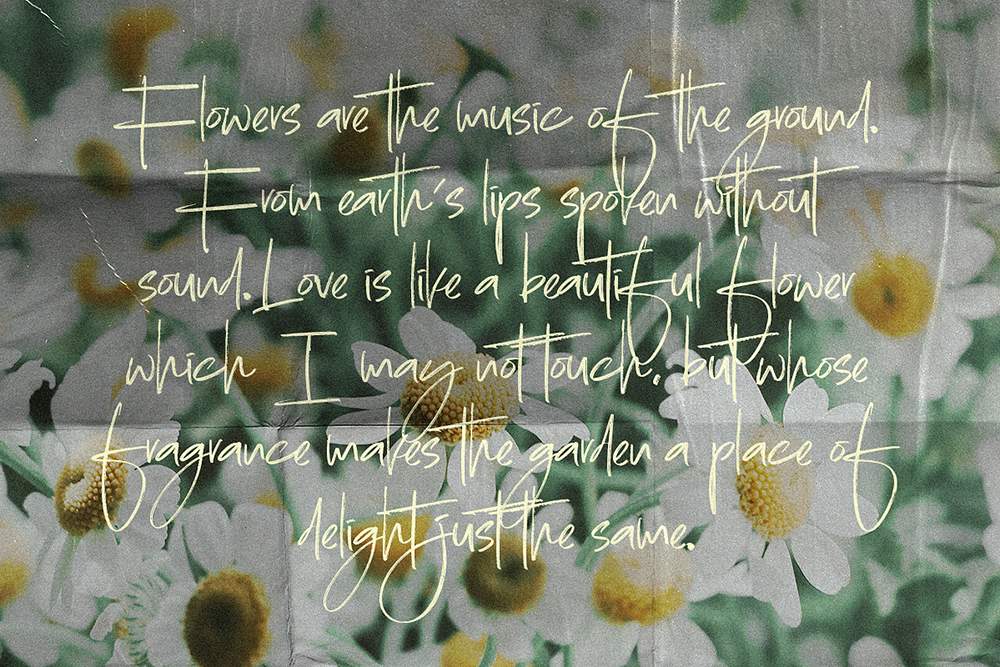 Flowers are the music of the ground.
From earth's lips spoken without
sound. Love is like a beautiful flower
which I may not touch, but whose
fragrance makes the garden a place of
delight just the same.